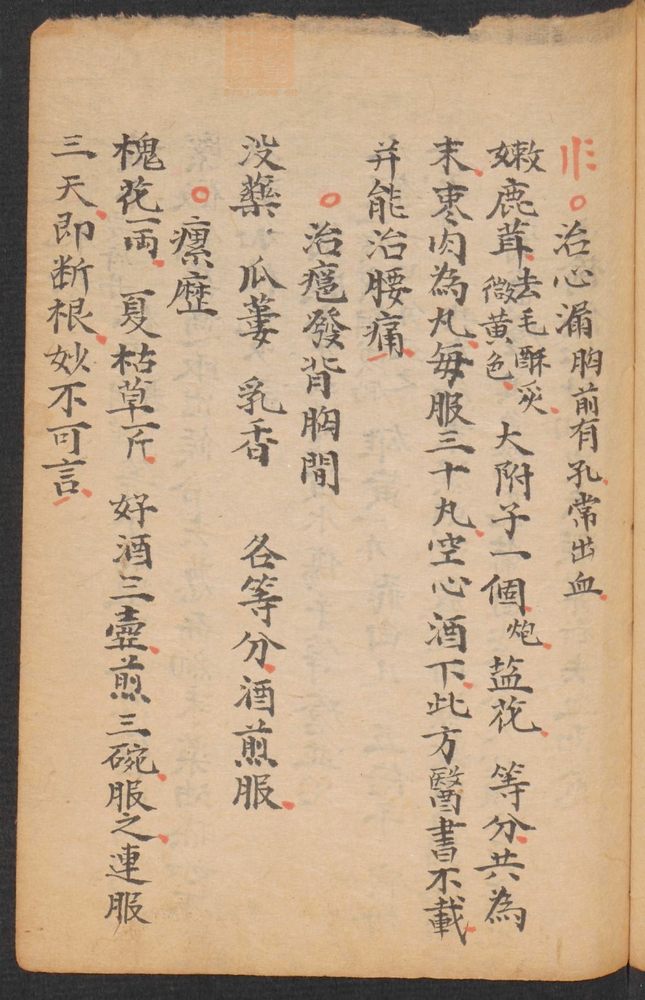 治心漏胸前有孔常出血
嫩鹿茸去毛酥炙微黄色大附子一個炮盐花等分共為
末枣肉為丸每服三十丸空心酒下此方醫書不載
并能治腰痛
治癍發背胸間
没藥瓜蔞乳香各等分酒煎服
瘰歷
槐花一両夏枯草一斤好酒三壺煎三碗服之連服
三天即断根妙不可言